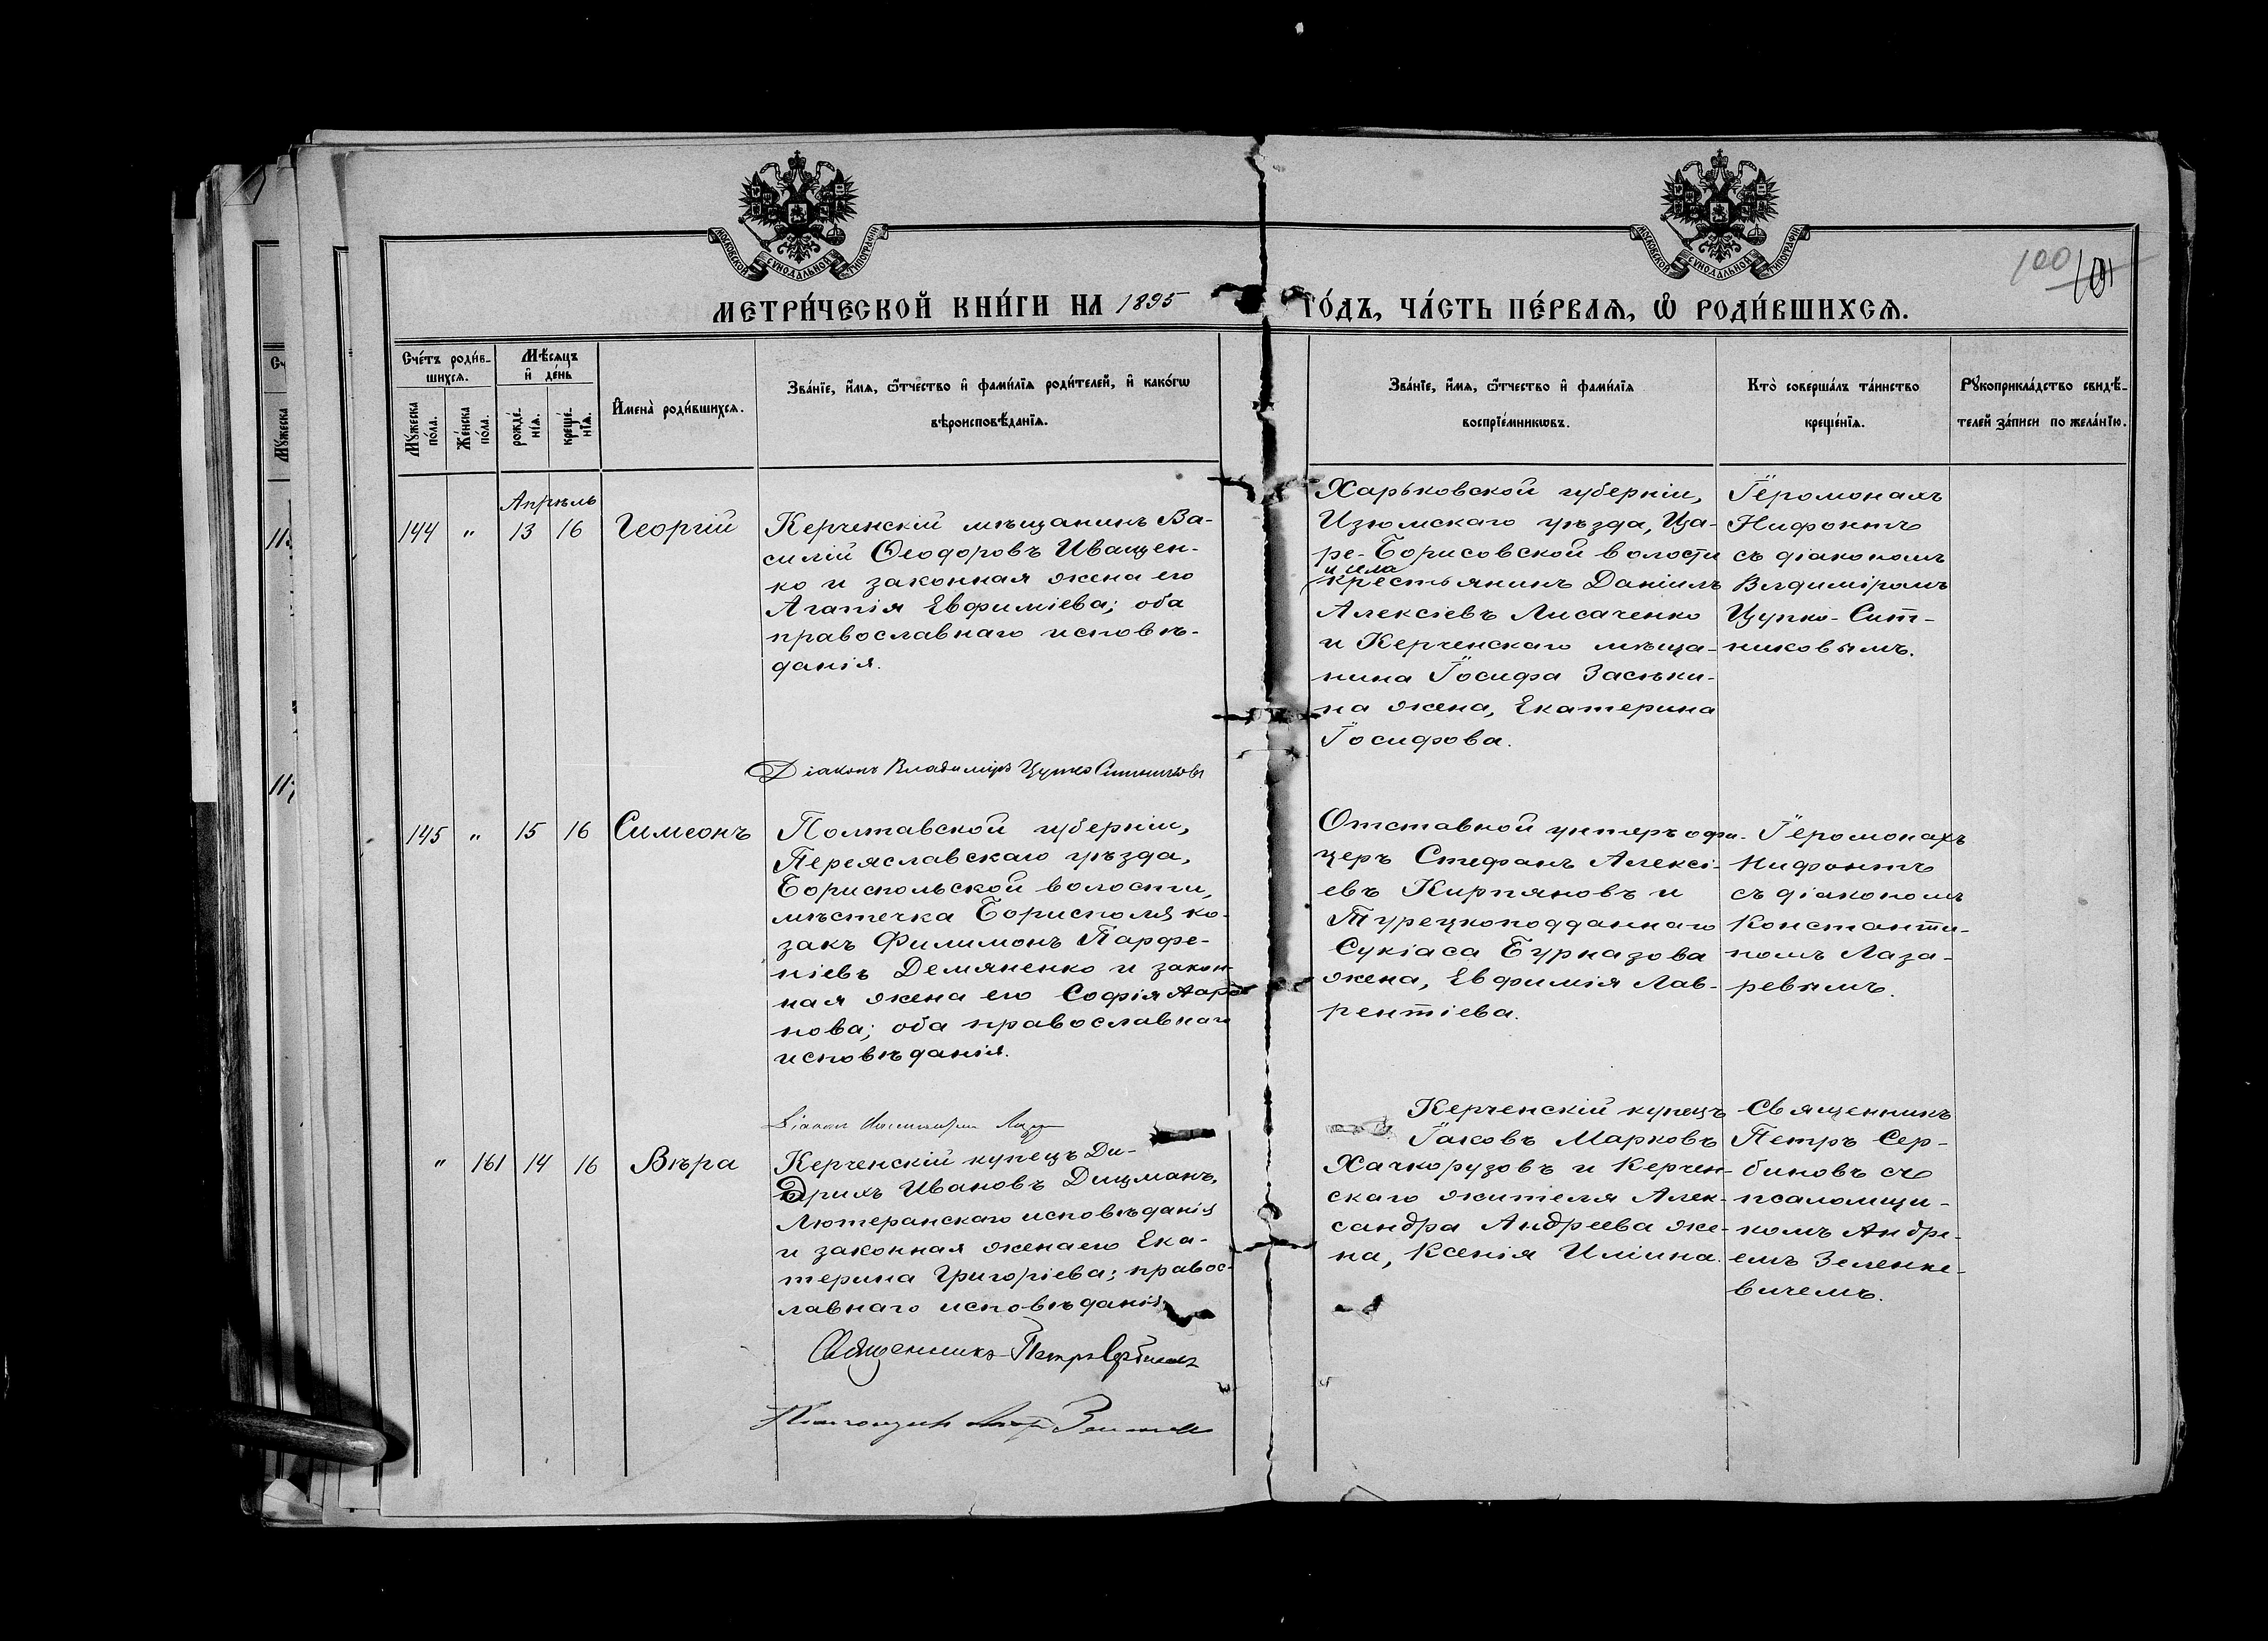 МОСКОВСКОЙ СУНОДАЛЬНОЙ ТИПОГРАФІИ
МОСКОВСКОЙ СУНОДАЛЬНОЙ ТИПОГРАФІИ
100 101
МЕТРИ́ЧЕСКОЙ КНИ́ГИ НА 1895 ГО́ДЪ, ЧА́СТЬ ПЕ́РВАЯ, Ѡ РОДИ́ВШИХСЯ.
Сче́тъ роди́в-
шихся.
Мѣ́сяцъ
и҆ де́нь
Мꙋ́жеска
по́ла.
Же́нска
по́ла.
рожде́-
нїя.
креще́-
нїя.
И҆мена̀ роди́вшихся.
Зва́нїе, и҆́мя, ѻ҆́тчество и҆ фами́лїя роди́телей, и҆ како́гѡ
вѣроисповѣ́данїя.
Зва́нїе, и҆́мя, ѻ҆́тчество и҆ фами́лїя
воспрїе́мникѡвъ.
Кто̀ соверша́лъ та́инство
креще́нїя.
Рꙋкоприкла́дство свидѣ́-
телей за́писи по жела́нїю.
Апрѣль
144 " 13 16 Георгій
Керченскій мѣщанинъ Ва-
силій Ѳеодоровъ Иващен-
ко и законная жена его
Агапія Евфиміева; оба
православнаго исповѣ-
данія.
Харьковской губерніи,
Изюмскаго уѣзда, Ца-
ре-Борисовской волости
и села
крестьянинъ Даніилъ
Алексіевъ Лисаченко
и Керченскаго мѣща-
нина Іосифа Засѣки-
на жена, Екатерина
Іосифова.
Іеромонахъ
Нифонтъ
съ діакономъ
Влдиміромъ
Цупко-Сит-
никовымъ.
Діаконъ Владиміръ Цупко Ситниковъ
145 " 15 16 Симеонъ
Полтавской губерніи,
Переяславскаго уѣзда,
Бориспольской волости,
мѣстечка Борисполя ко-
закъ Филимонъ Парфе-
ніевъ Демяненко и закон-
ная жена его Софія Ааро-
нова; оба православнаго
исповѣданія.
Отставной унтеръ офи-
церъ Стефанъ Алексі-
евъ Кирпяновъ и
Турецкоподданнаго
Сукіаса Бурназова
жена, Евфимія Лав-
рентіева.
Іеромонахъ
Нифонтъ
съ діакономъ
Константи-
номъ Лаза-
ревымъ.
Діаконъ
" 161 14 16 Вѣра
Керченскій купецъ Ди-
дрихъ Ивановъ Дицманъ,
Лютеранскаго исповѣданія
и законная жена его Ека-
терина Григоріева; правос-
лавнаго исповѣданія
Керченскій купецъ
Іаковъ Марковъ
Хачкорузовъ и Керчен-
скаго жителя Алек-
сандра Андреева же-
на, Ксенія Иліина.
Священникъ
Петръ Сер-
биновъ съ
псаломщи-
комъ Андре-
емъ Зеленке-
вичемъ.
Священникъ Петръ Сербиновъ